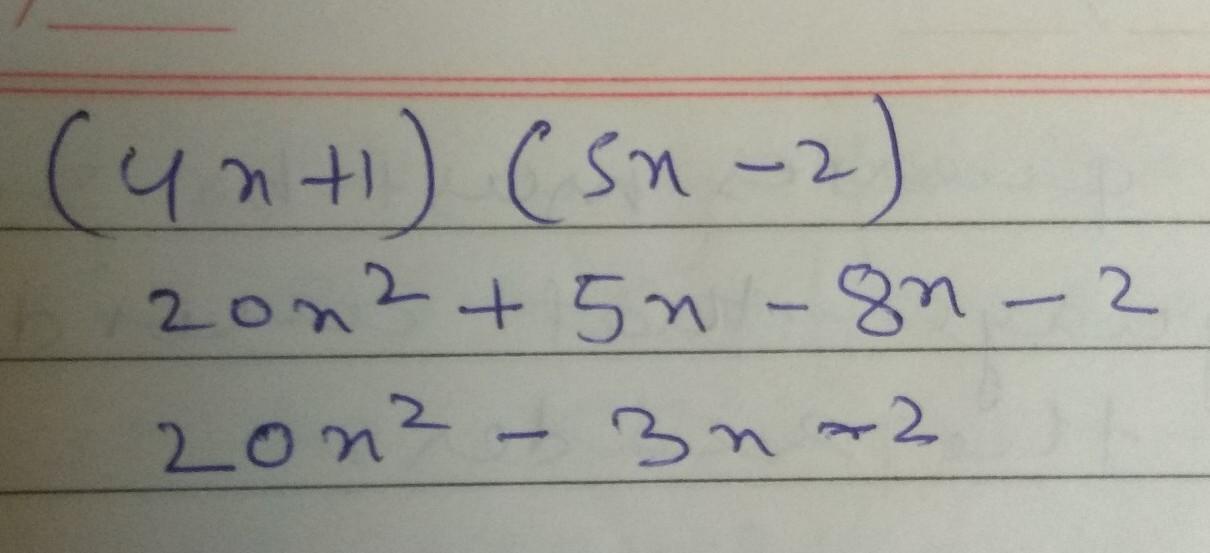 (4x+1) (5x-2)
20x² + 5x - 8x - 2
20x² - 3x - 2